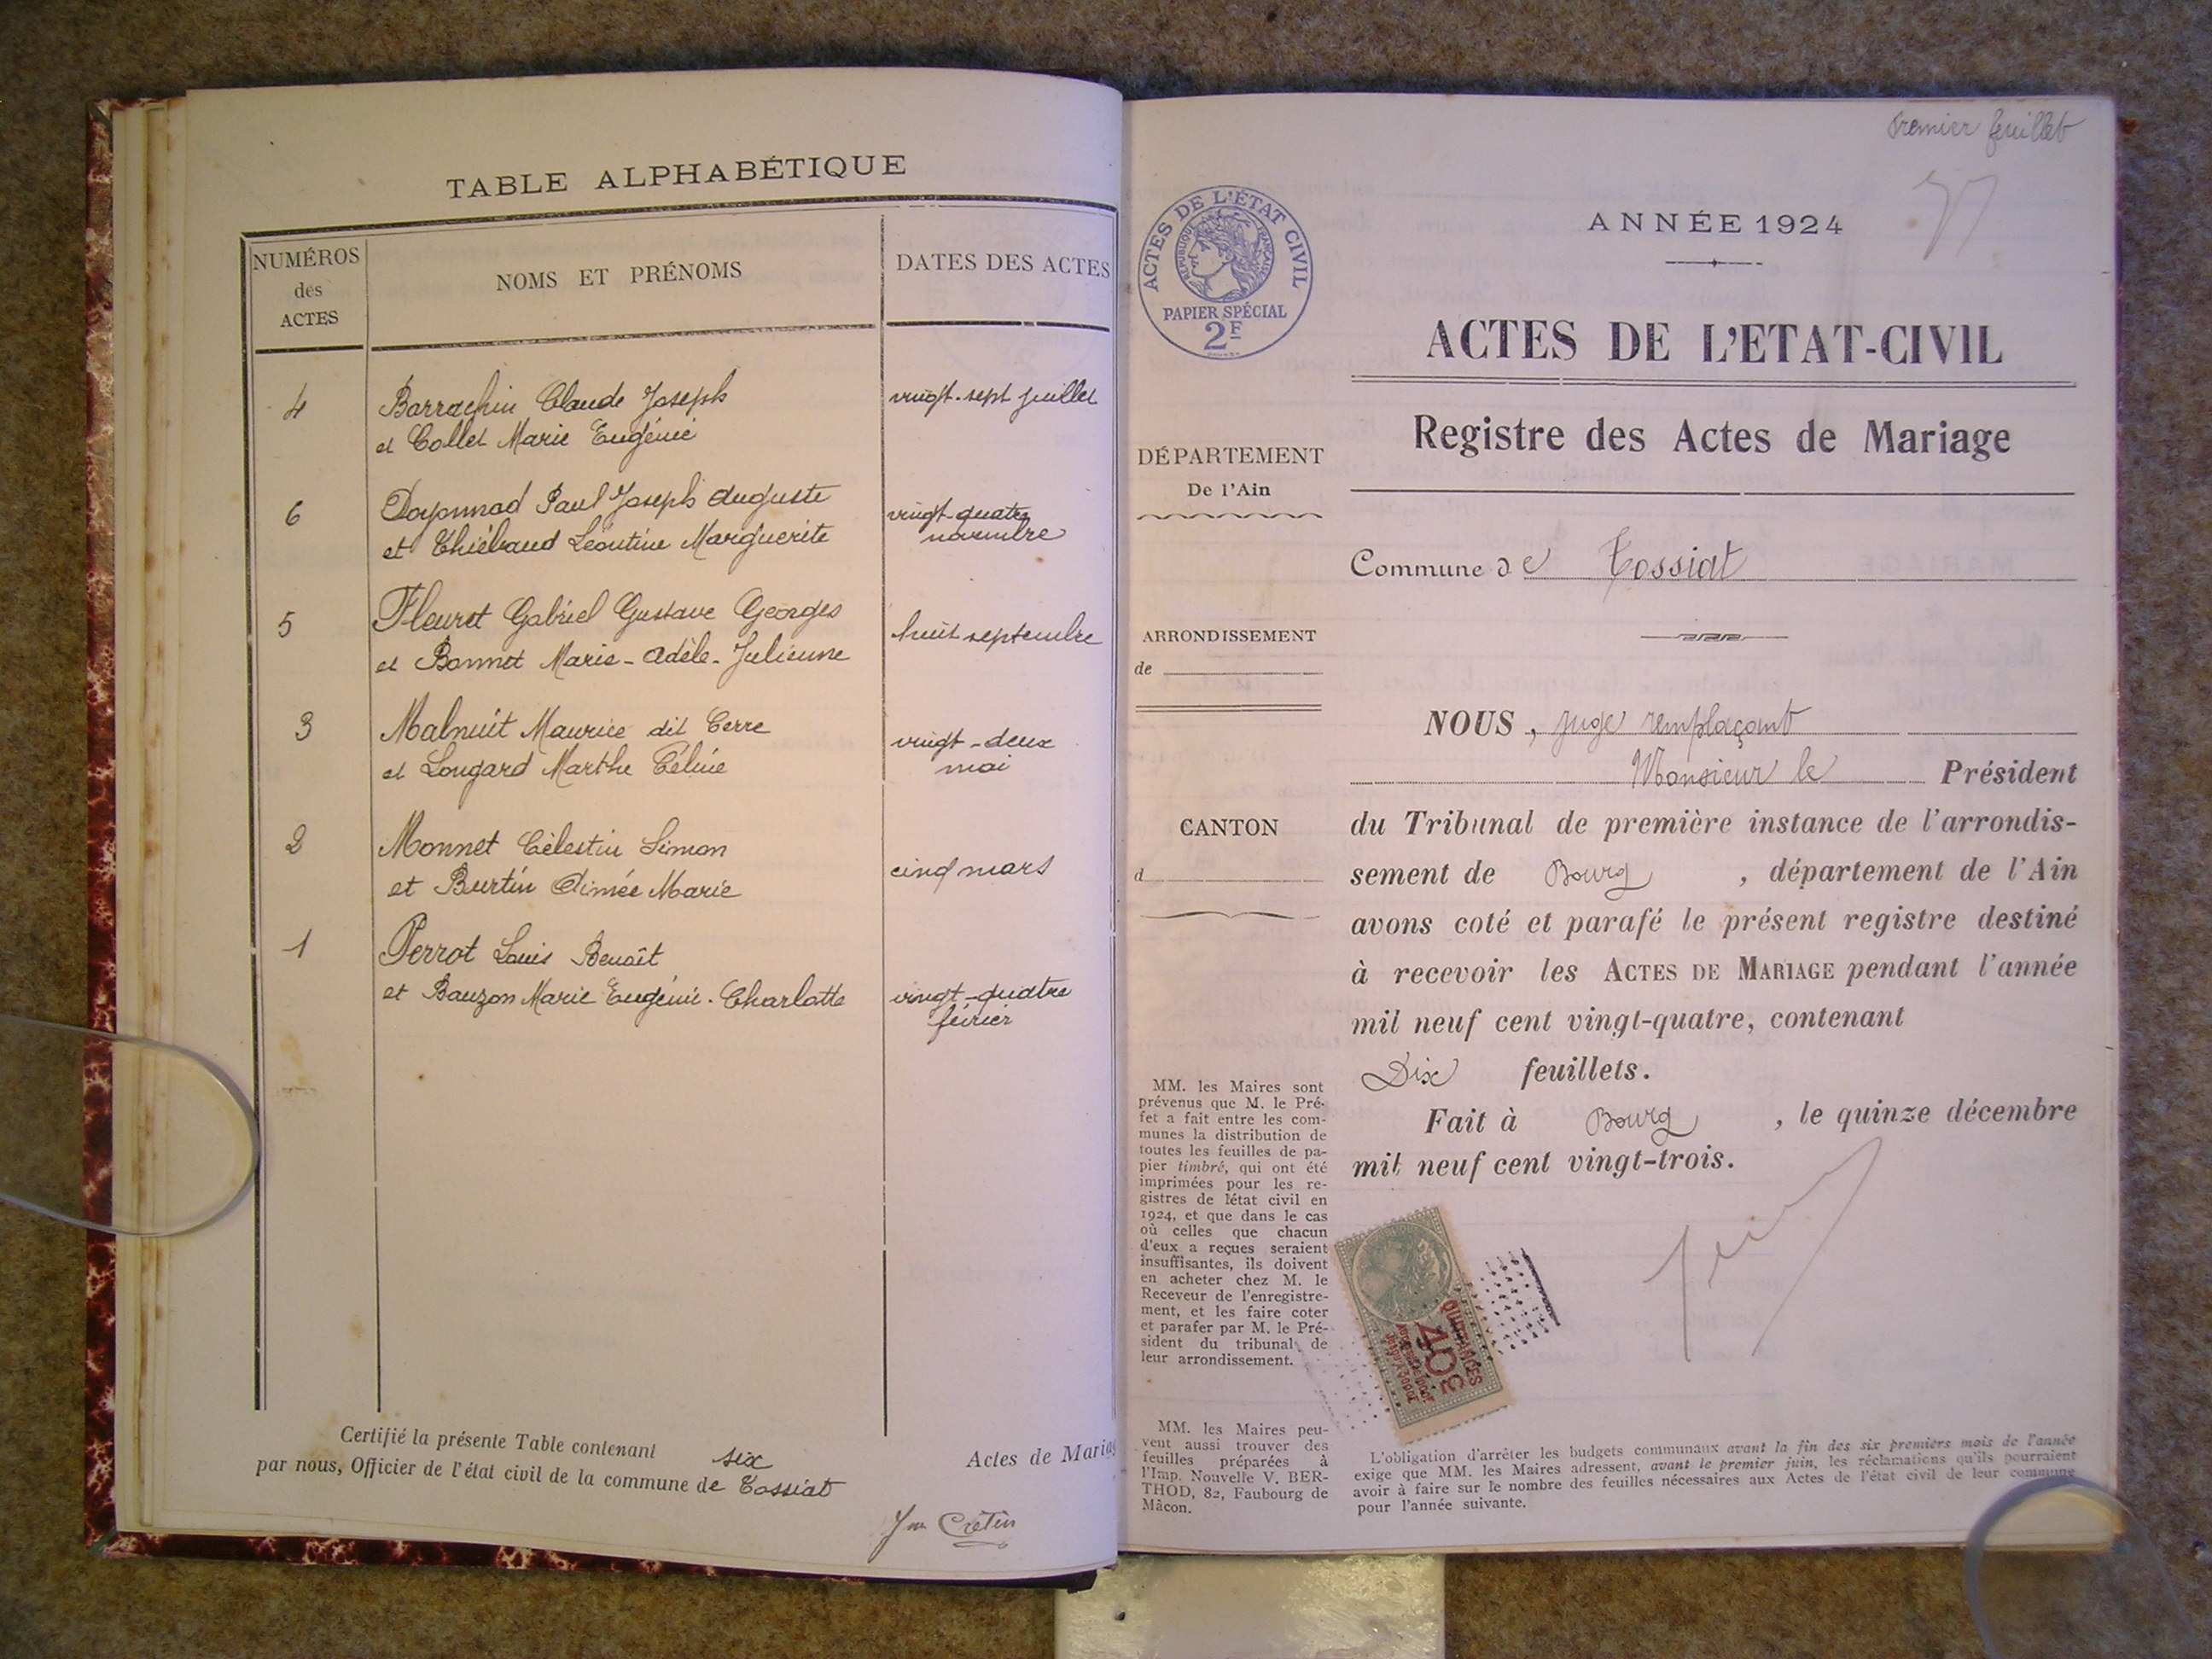 TABLE ALPHABÉTIQUE
NUMÉROS
des
ACTES
NOMS ET PRÉNOMS
DATES DES ACTES
4
Barrachin Claude Joseph
et Collet Marie Eugénie
vingt-sept juillet
6
Doyonnad Paul Joseph Auguste
et Thiébaud Léontine Marguerite
vingt-quatre
novembre
5
Fleuret Gabriel Gustave Georges
et Bonnet Marie-Adèle-Julienne
huit septembre
3
Malnuit Maurice dit Cerre
et Longard Marthe Céline
vingt-deux
mai
2
Monnet Célestin Simon
et Burtin Aimée Marie
cinq mars
1
Perrot Louis Benoît
et Bauzon Marie Eugénie-Charlotte
vingt-quatre
février
Certifié la présente Table contenant six Actes de Mariag
par nous, Officier de l'état civil de la commune de Tossiat
Cretin
Premier feuillet
ACTES DE L'ÉTAT CIVIL
RÉPUBLIQUE FRANÇAISE
PAPIER SPÉCIAL
2F
ANNÉE 1924
ACTES DE L'ETAT-CIVIL
Registre des Actes de Mariage
DÉPARTEMENT
De l'Ain
Commune de Tossiat
ARRONDISSEMENT
de
CANTON
d
NOUS, juge remplaçant
Monsieur le Président
du Tribunal de première instance de l'arrondis-
sement de Bourg, département de l'Ain
avons coté et parafé le présent registre destiné
à recevoir les ACTES DE MARIAGE pendant l'année
mil neuf cent vingt-quatre, contenant
Dix feuillets.
Fait à Bourg, le quinze décembre
mil neuf cent vingt-trois.
MM. les Maires sont
prévenus que M. le Pré-
fet a fait entre les com-
munes la distribution de
toutes les feuilles de pa-
pier timbré, qui ont été
imprimées pour les re-
gistres de l'état civil en
1924, et que dans le cas
où celles que chacun
d'eux a reçues seraient
insuffisantes, ils doivent
en acheter chez M. le
Receveur de l'enregistre-
ment, et les faire coter
et parafer par M. le Pré-
sident du tribunal de
leur arrondissement.
QUITTANCES
40c
MM. les Maires peu-
vent aussi trouver des
feuilles préparées à
l'Imp. Nouvelle V. BER-
THOD, 82, Faubourg de
Mâcon.
L'obligation d'arrêter les budgets communaux avant la fin des six premiers mois de l'année
exige que MM. les Maires adressent, avant le premier juin, les réclamations qu'ils pourraient
avoir à faire sur le nombre des feuilles nécessaires aux Actes de l'état civil de leur commune
pour l'année suivante.